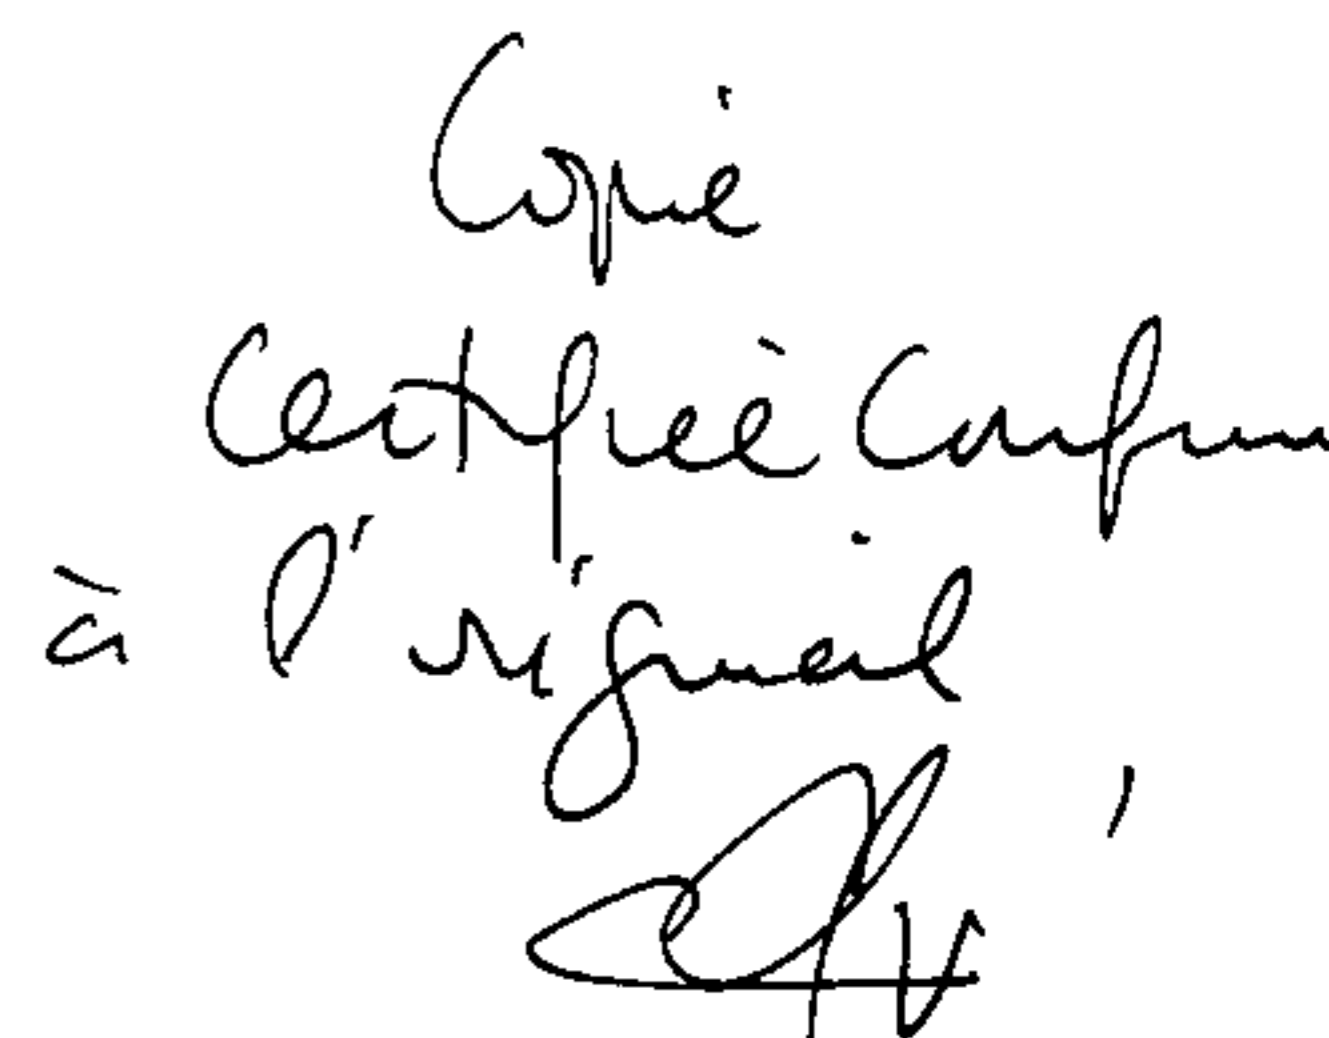 Copie
Certifiée Conforme
à l'original